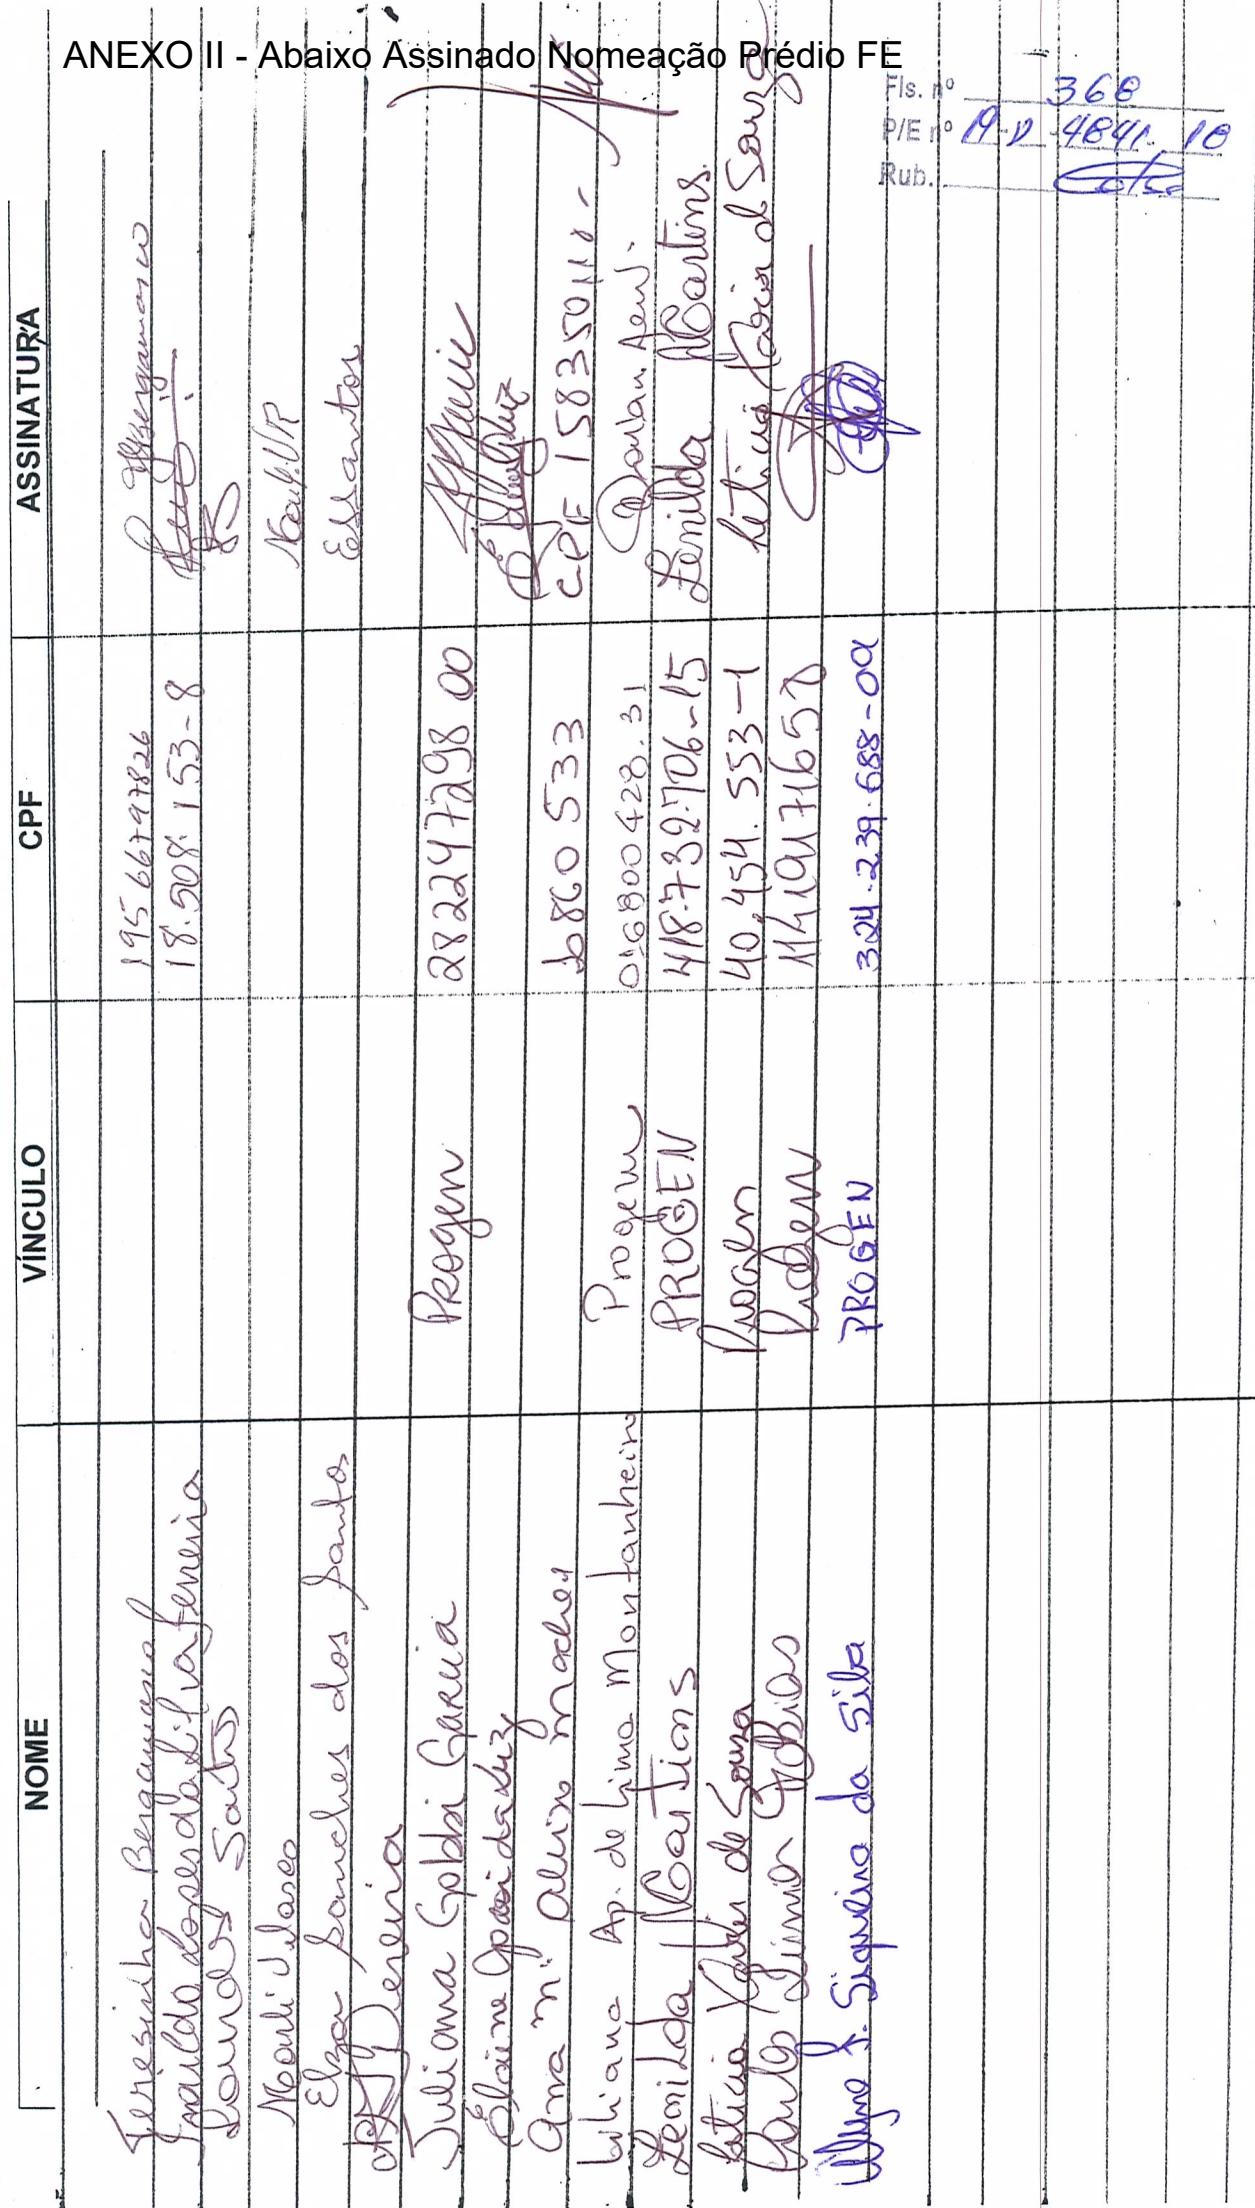 ANEXO II - Abaixo Assinado Nomeação Prédio FE
Fls. nº 368
P/E nº 19-P-4841.18
Rub.
NOME VÍNCULO CPF ASSINATURA
Teresinha Bergamasco 195 66797826 Bergamasco
Inaildo Lopes da Silva Ferreira 18.508.153-8
Lourdes Santos
Marli Velasco
Elza Sanches dos Santos ESSantos
Pereira
Juliana Gobbi Garcia PROgen 282247298 00
Elaine Luiz
Ana Mª Alves 6860 533 CPF 158350118-
Liliana Ap. de Lima Montanheiro Progem 016800428.31
Zenilda Martins PROGEN 418.732.706-15 Zenilda Martins.
Letícia Xavier de Souza Progen 40.454.553-1 Letícia Xavier de Souza
Carlos Tobias Progem 11419171658
S. Siqueira da Silva PROGEN 324.239.688-09